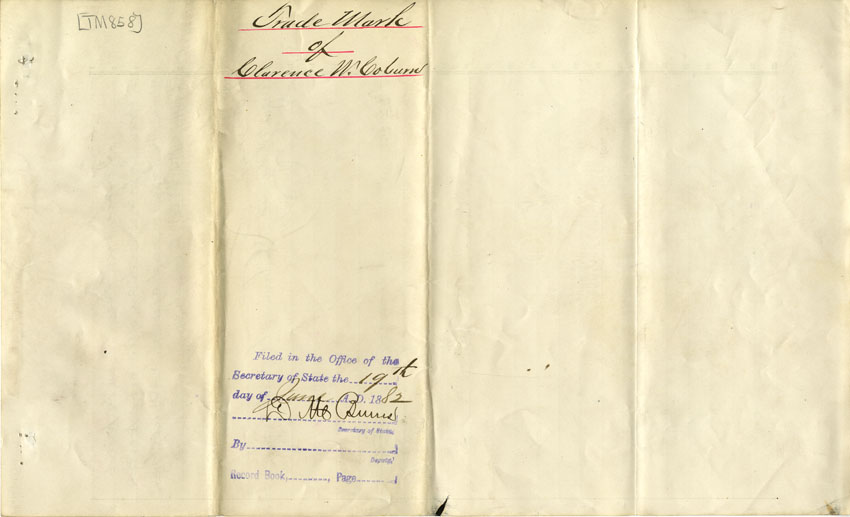 [TM858]
Trade Mark
of
Clarence W. Coburn
Filed in the Office of the
Secretary of State the 19th
day of June A.D. 1882
D M Burns
Secretary of State.
By
Deputy.
Record Book, Page